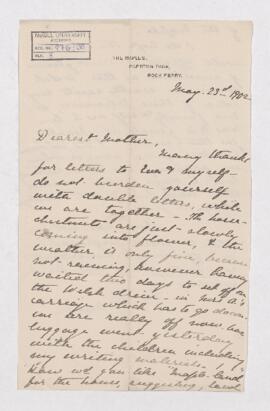 McGILL UNIVERSITY
ARCHIVES
ACC. NO.
REF. 8
THE MAPLES,
ROCK FERRY.
May. 23rd 1902
Dearest Mother,
Many thanks
for letters to Eva & myself-
do not burden yourself
with double letters, while
we are together - The horse-
chestnuts are just slowly
coming into flower, & the
weather is only fine, because
not raining, however having
waited two days to set off on
the Welsh drive - in Mrs A's
carriage which has to go down
we are really off now, our
luggage went yesterday
with the children including
my writing materials. I
know we you like
for the house, suggesting, land